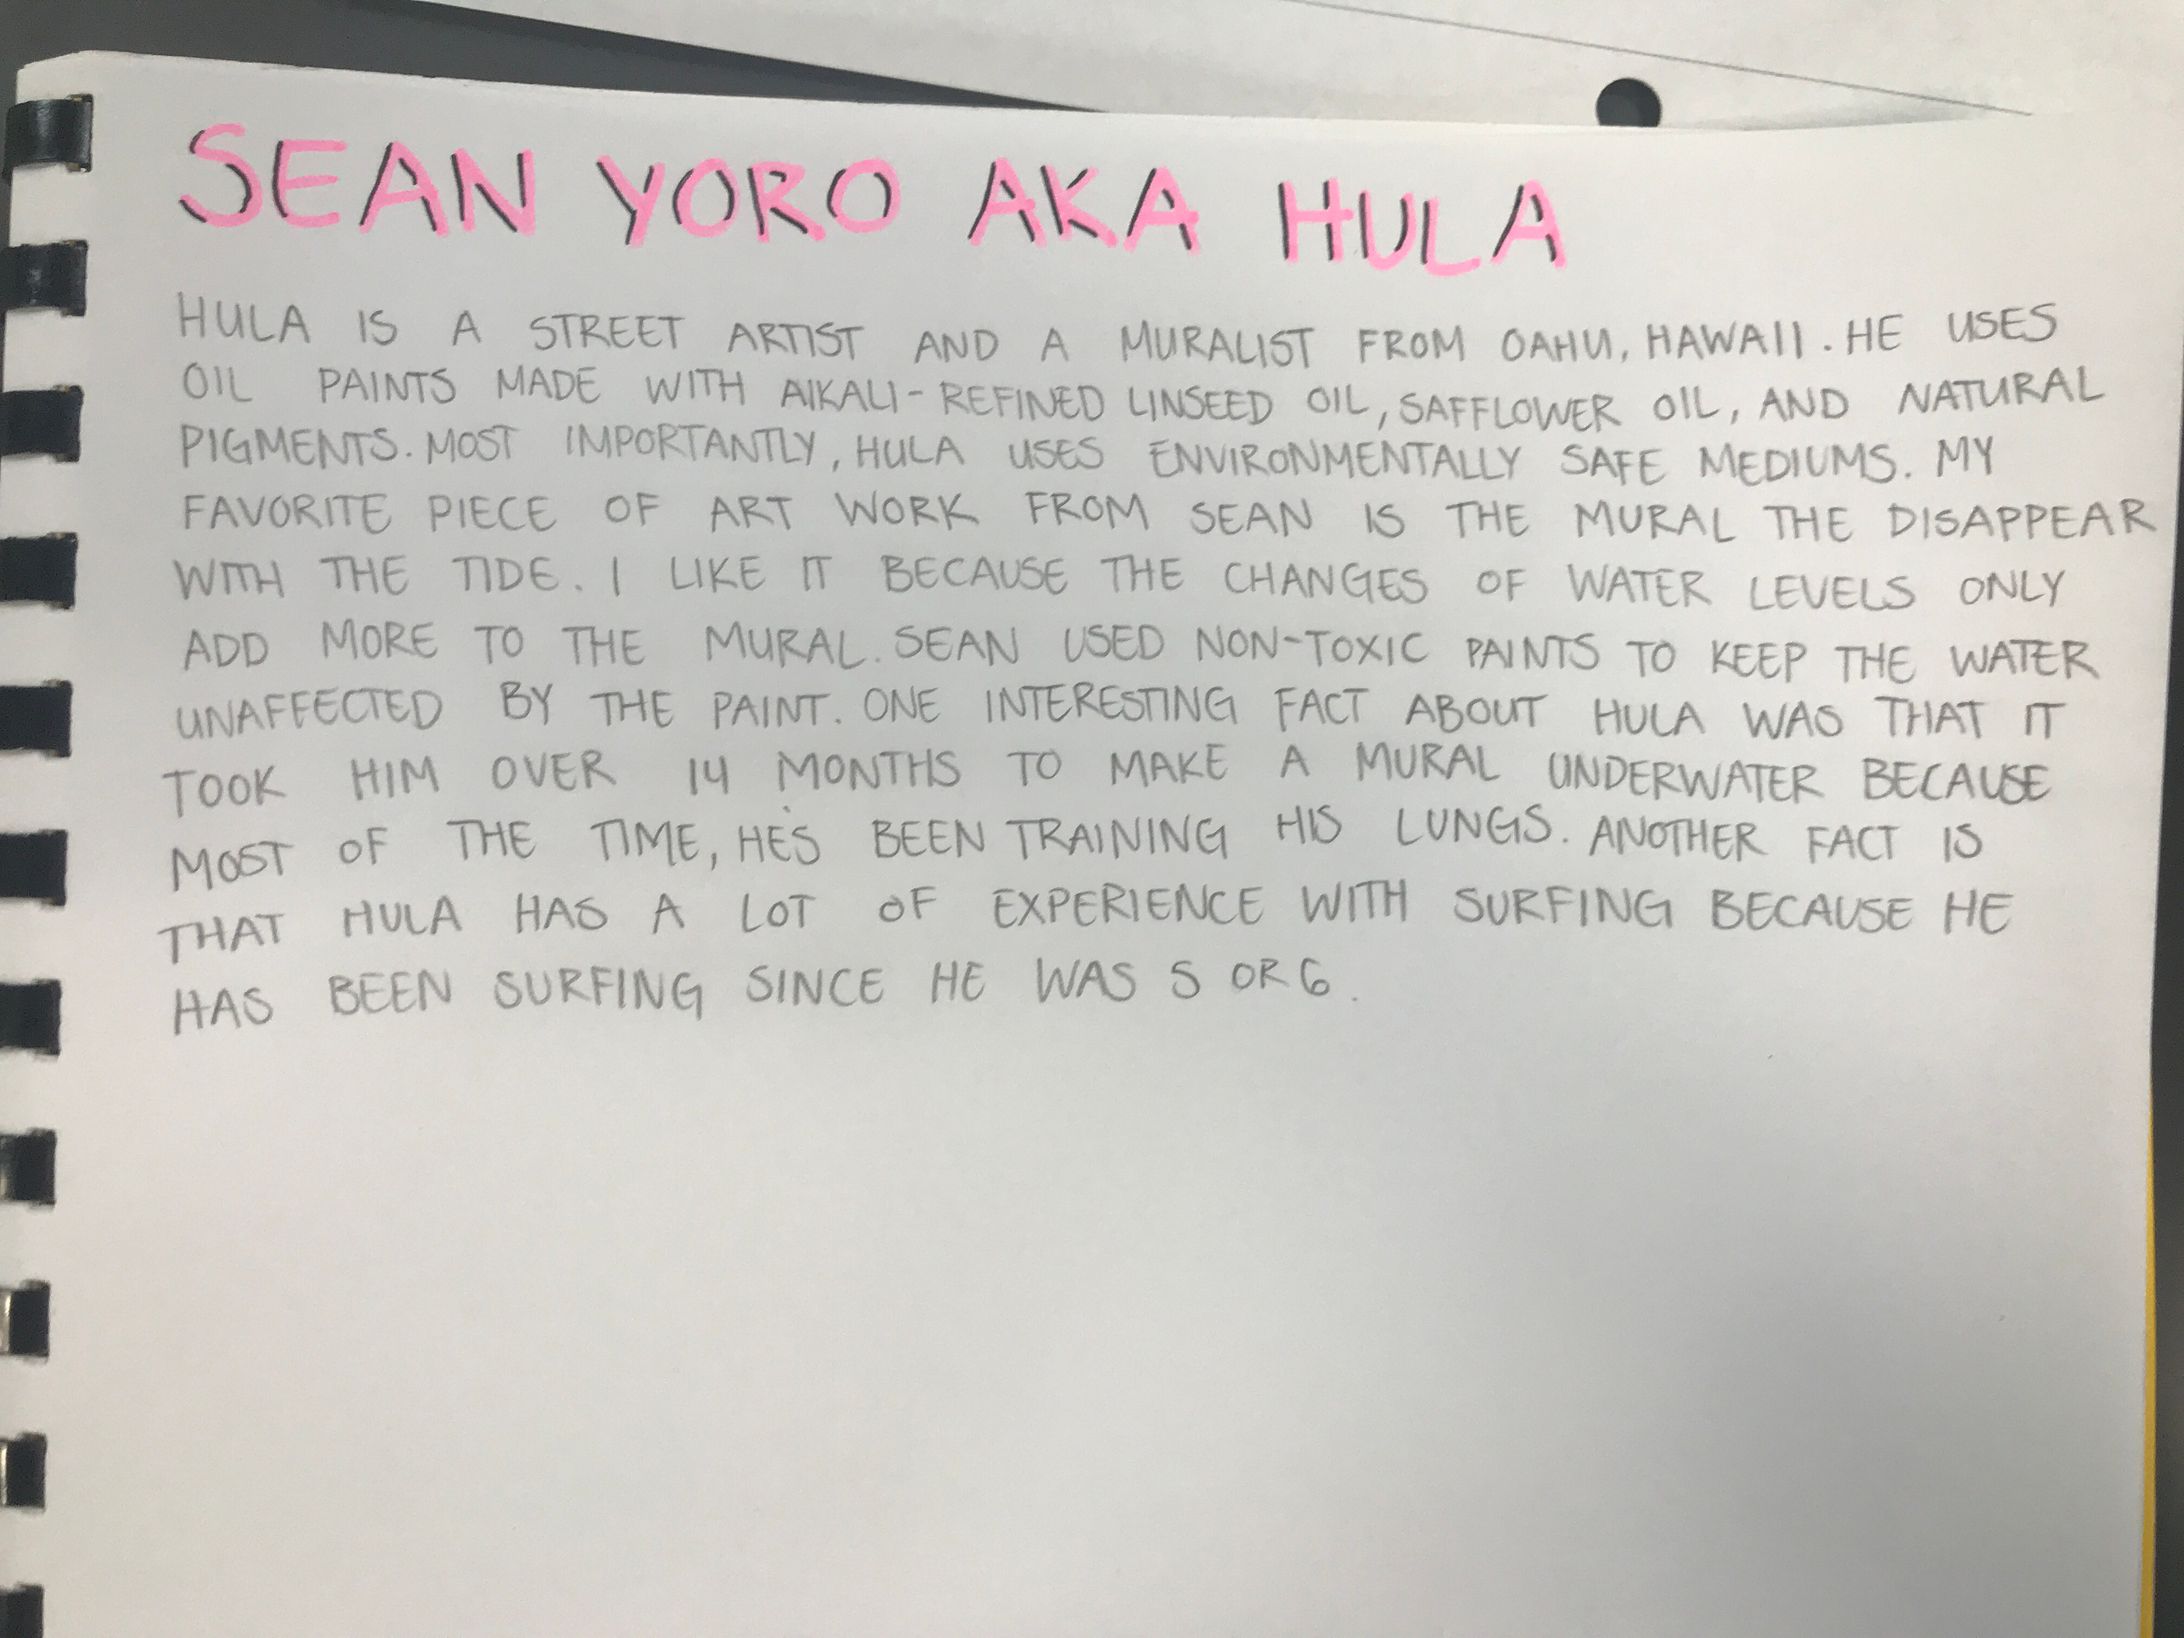 SEAN YORO AKA HULA
HULA IS A STREET ARTIST AND A MURALIST FROM OAHU, HAWAII. HE USES
OIL PAINTS MADE WITH AlKALI-REFINED LINSEED OIL, SAFFLOWER OIL, AND NATURAL
PIGMENTS. MOST IMPORTANTLY, HULA USES ENVIRONMENTALLY SAFE MEDIUMS. MY
FAVORITE PIECE OF ART WORK FROM SEAN IS THE MURAL THE DISAPPEAR
WITH THE TIDE. I LIKE IT BECAUSE THE CHANGES OF WATER LEVELS ONLY
ADD MORE TO THE MURAL. SEAN USED NON-TOXIC PAINTS TO KEEP THE WATER
UNAFFECTED BY THE PAINT. ONE INTERESTING FACT ABOUT HULA WAS THAT IT
TOOK HIM OVER 14 MONTHS TO MAKE A MURAL UNDERWATER BECAUSE
MOST OF THE TIME, HE'S BEEN TRAINING HIS LUNGS. ANOTHER FACT IS
THAT HULA HAS A LOT OF EXPERIENCE WITH SURFING BECAUSE HE
HAS BEEN SURFING SINCE HE WAS 5 OR 6.